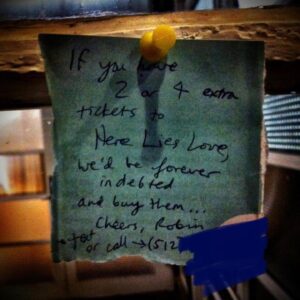 If you have
2 or 4 extra
tickets to
Here Lies Love,
we'd be forever
indebted
and buy them...
Cheers, Robin
or call → (512)